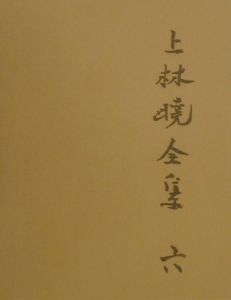 上林曉全集 六